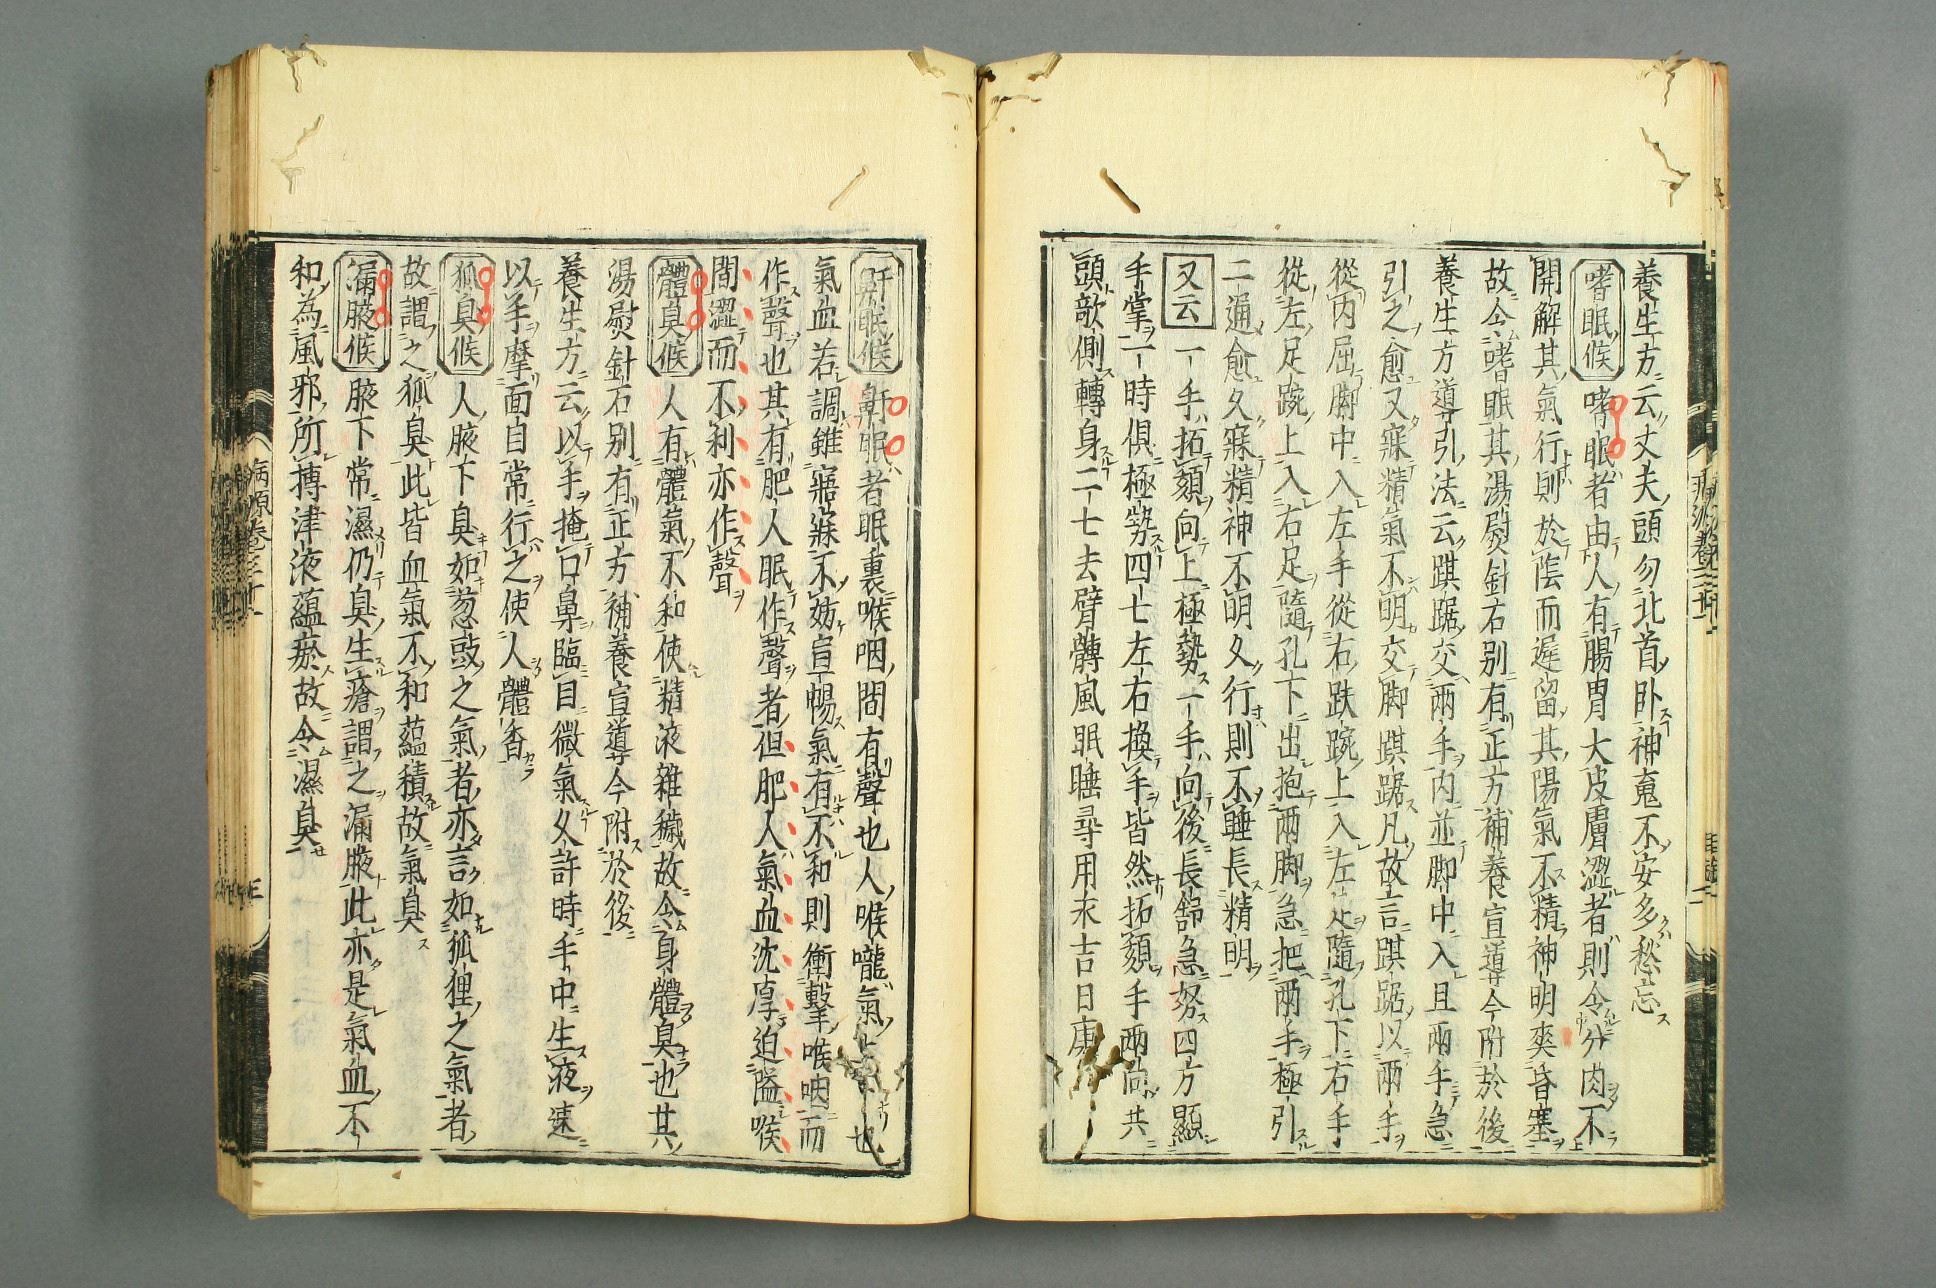 養生方云丈夫頭勿北首卧神䰟不安多愁忘
嗜眠候 嗜眠者由人有腸胃大皮膚澀者則令分肉不
開解其氣行則於陰而遲留其陽氣不精神明爽昏塞
故令嗜眠其湯熨針石别有正方補養宣導今附於後
養生方導引法云踑踞交兩手内並脚中入且兩手急
引之愈久寐精氣不明交脚踑踞凡故言踑踞以兩手
從内屈脚中入左手從右跌踠上入左足隨孔下右手
從左足踠上入右足隨孔下出抱兩脚急把兩手極引
二通愈久寐精神不明久行則不睡長精明
又云 一手拓頦向上極勢一手向後長舒急努四方顯
手掌一時俱極勢四七左右換手皆然拓頦手兩向共
頭欹側轉身二七去臂髆風眠睡尋用永吉日康
鼾眠候 鼾眠者眠裏喉咽間有聲也人喉嚨氣上下也
氣血若調雖寤寐不妨宣暢氣有不和則衝擊喉咽而
作聲也其有肥人眠作聲者但肥人氣血沈厚迫隘喉
間澀而不利亦作聲
體臭候 人有體氣不和使精液雜穢故令身體臭也其
湯熨針石别有正方補養宣導今附於後
養生方云以手掩口鼻臨目微氣久許時手中生液速
以手摩面目常行之使人體香
狐臭候 人腋下臭如葱豉之氣者亦言如狐狸之氣者
故謂之狐臭此皆血氣不和藴積故氣臭
漏腋候 腋下常濕仍臭生瘡謂之漏腋此亦是氣血不
和為風邪所搏津液藴瘀故令濕臭
病源卷三十一